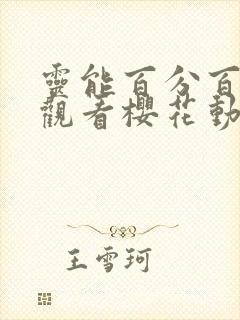 靈能百分百
觀看櫻花動
王雪珂